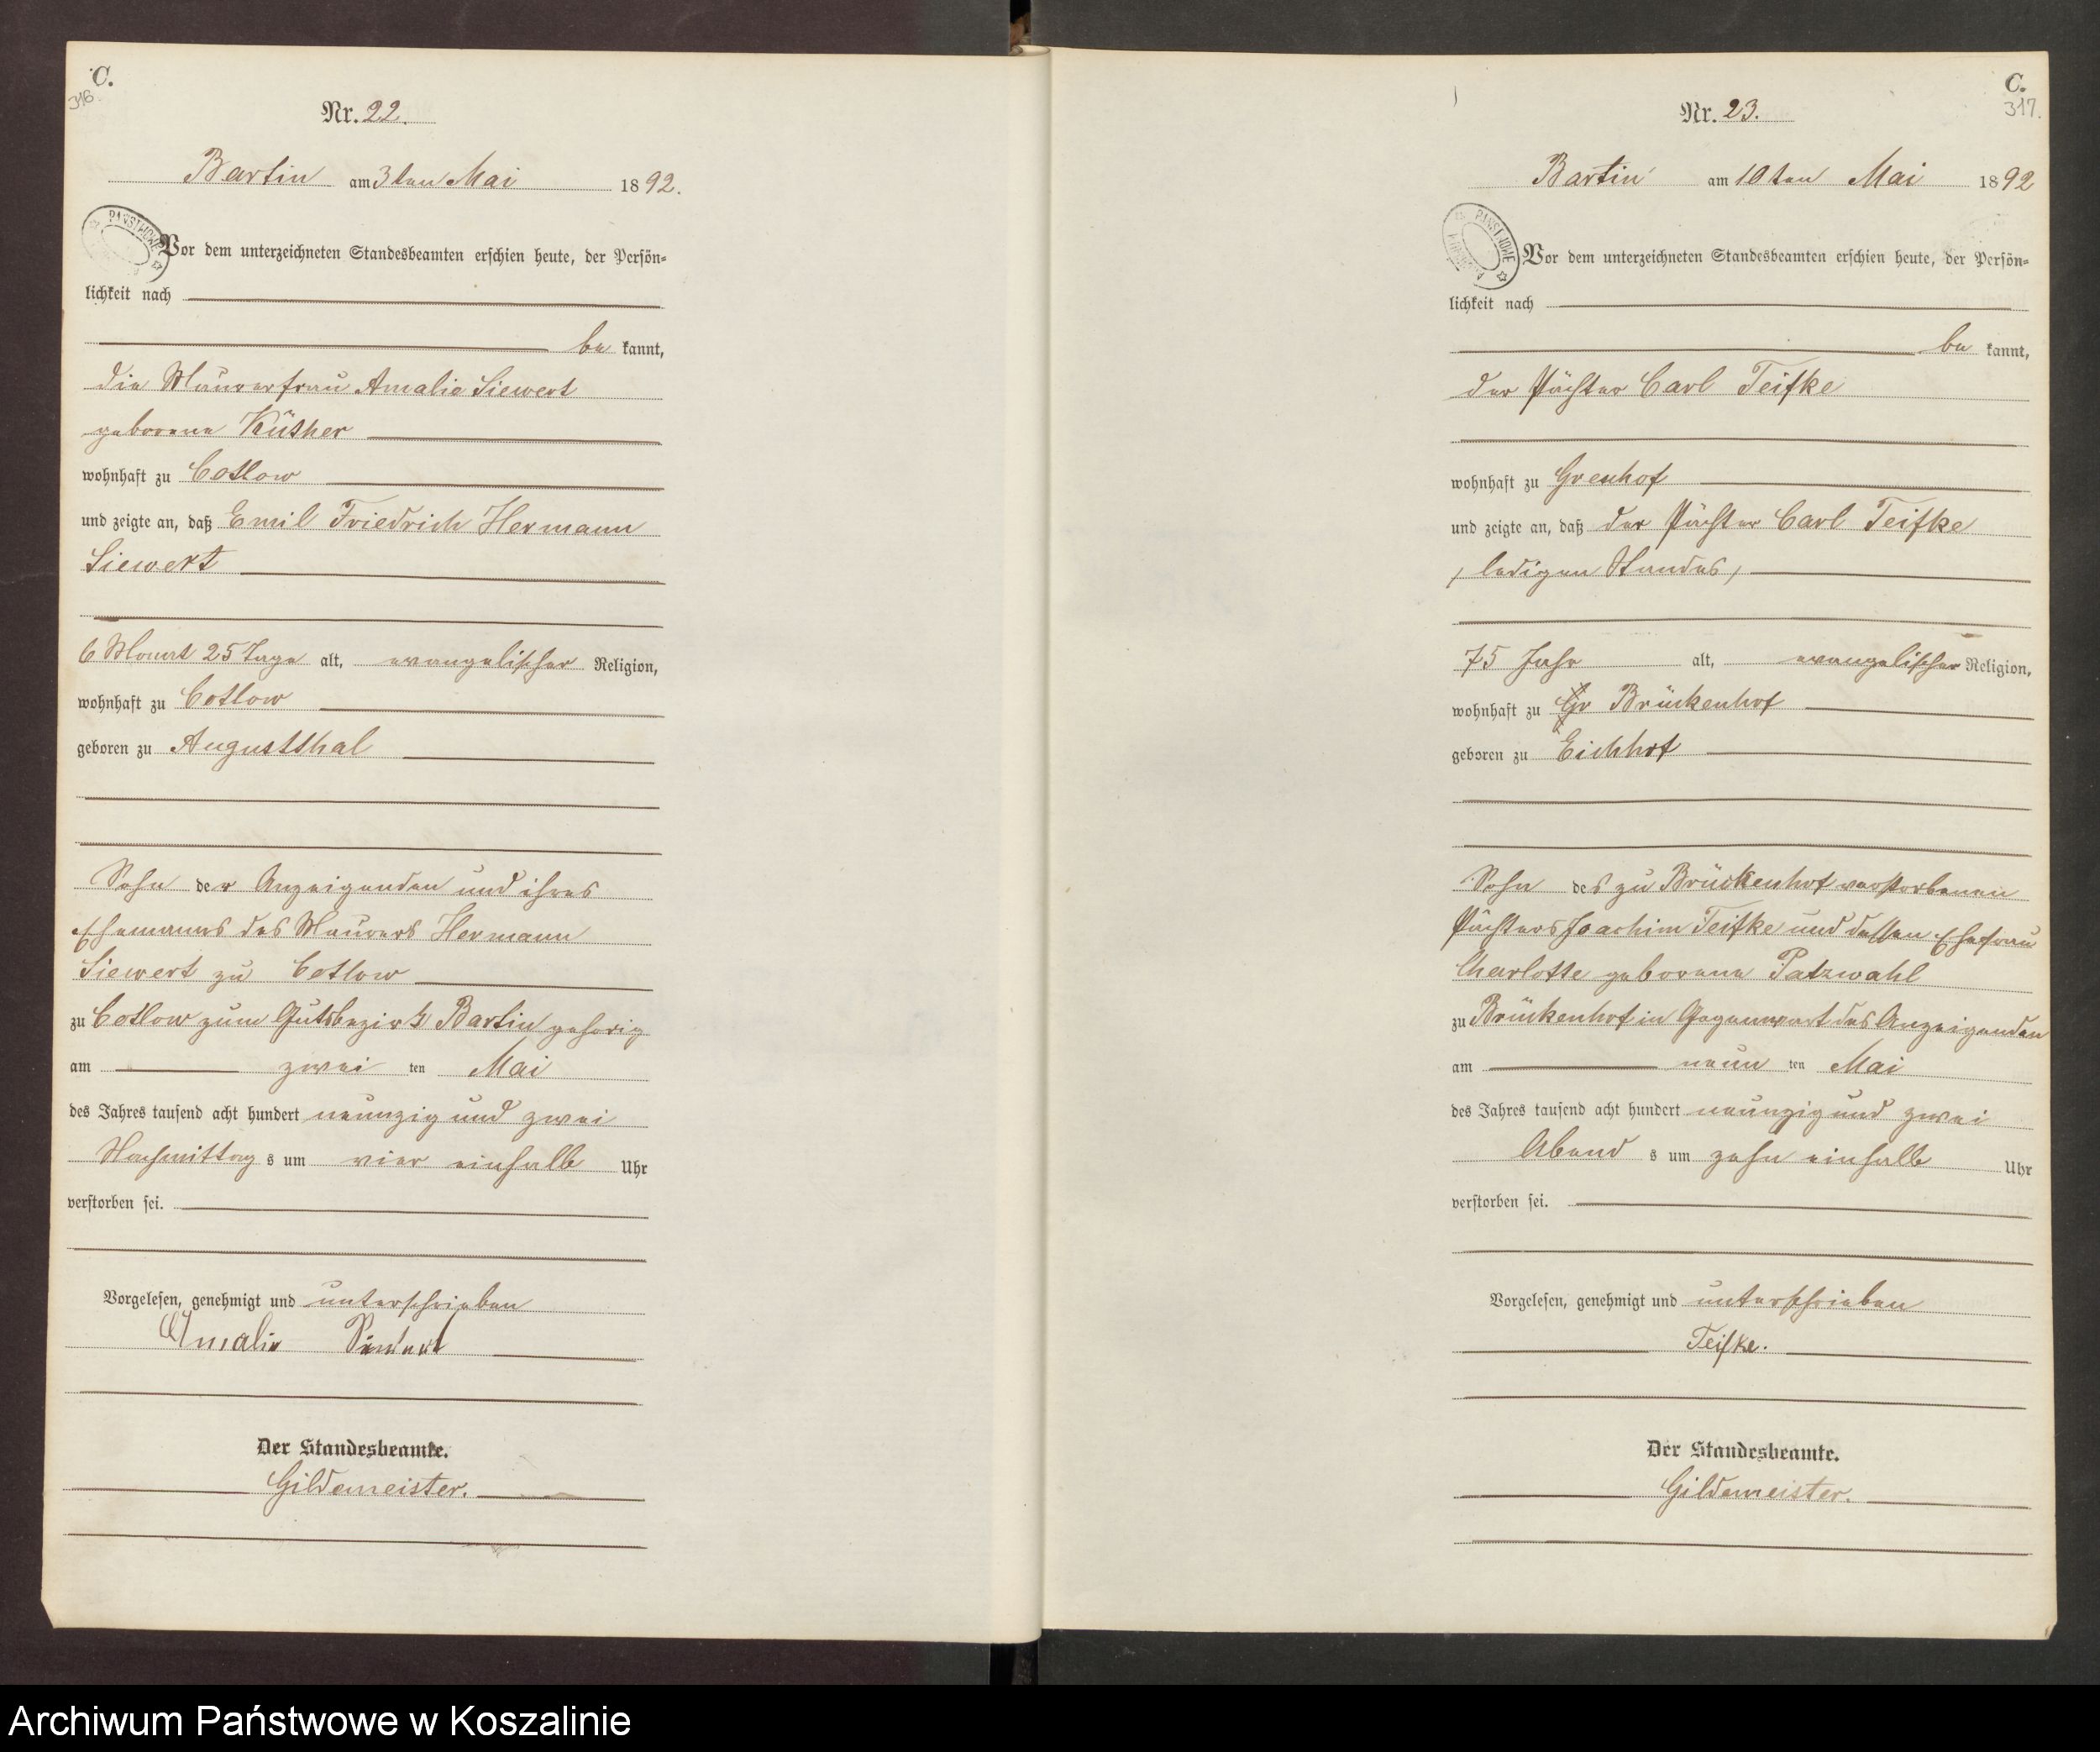 C.
316.
Nr. 22.
Bartin am 3ten Mai 1892.
PAŃSTWOWE
Vor dem unterzeichneten Standesbeamten erschien heute, der Persön=
lichkeit nach
be kannt,
die Maurerfrau Amalie Siewert
geborene Küther
wohnhaft zu Cotlow
und zeigte an, daß Emil Friedrich Hermann
Siewert
6 Monat 25 Tage alt, evangelischer Religion,
wohnhaft zu Cotlow
geboren zu Augustthal
Sohn der Anzeigenden und ihres
Ehemanns des Maurers Hermann
Siewert zu Cotlow
zu Cotlow zum Gutsbezirk Bartin gehörig
am zwei ten Mai
des Jahres tausend acht hundert neunzig und zwei
Nachmittag s um vier einhalb Uhr
verstorben sei.
Vorgelesen, genehmigt und unterschrieben
Amalie Siewert
Der Standesbeamte.
Gildemeister.
C.
317.
Nr. 23.
Bartin am 10ten Mai 1892
PAŃSTWOWE
Vor dem unterzeichneten Standesbeamten erschien heute, der Persön=
lichkeit nach
be kannt,
der Pächter Carl Teifke
wohnhaft zu Grenhof
und zeigte an, daß der Pächter Carl Teifke
, ledigen Standes,
75 Jahr alt, evangelischer Religion,
wohnhaft zu Gr Brückenhof
geboren zu Eichhof
Sohn des zu Brückenhof verstorbenen
Pächters Joachim Teifke und dessen Ehefrau
Charlotte geborene Patzwahl
zu Brückenhof in Gegenwart des Anzeigenden
am neun ten Mai
des Jahres tausend acht hundert neunzig und zwei
Abend s um zehn einhalb Uhr
verstorben sei.
Vorgelesen, genehmigt und unterschrieben
Teifke.
Der Standesbeamte.
Gildemeister.
Archiwum Państwowe w Koszalinie